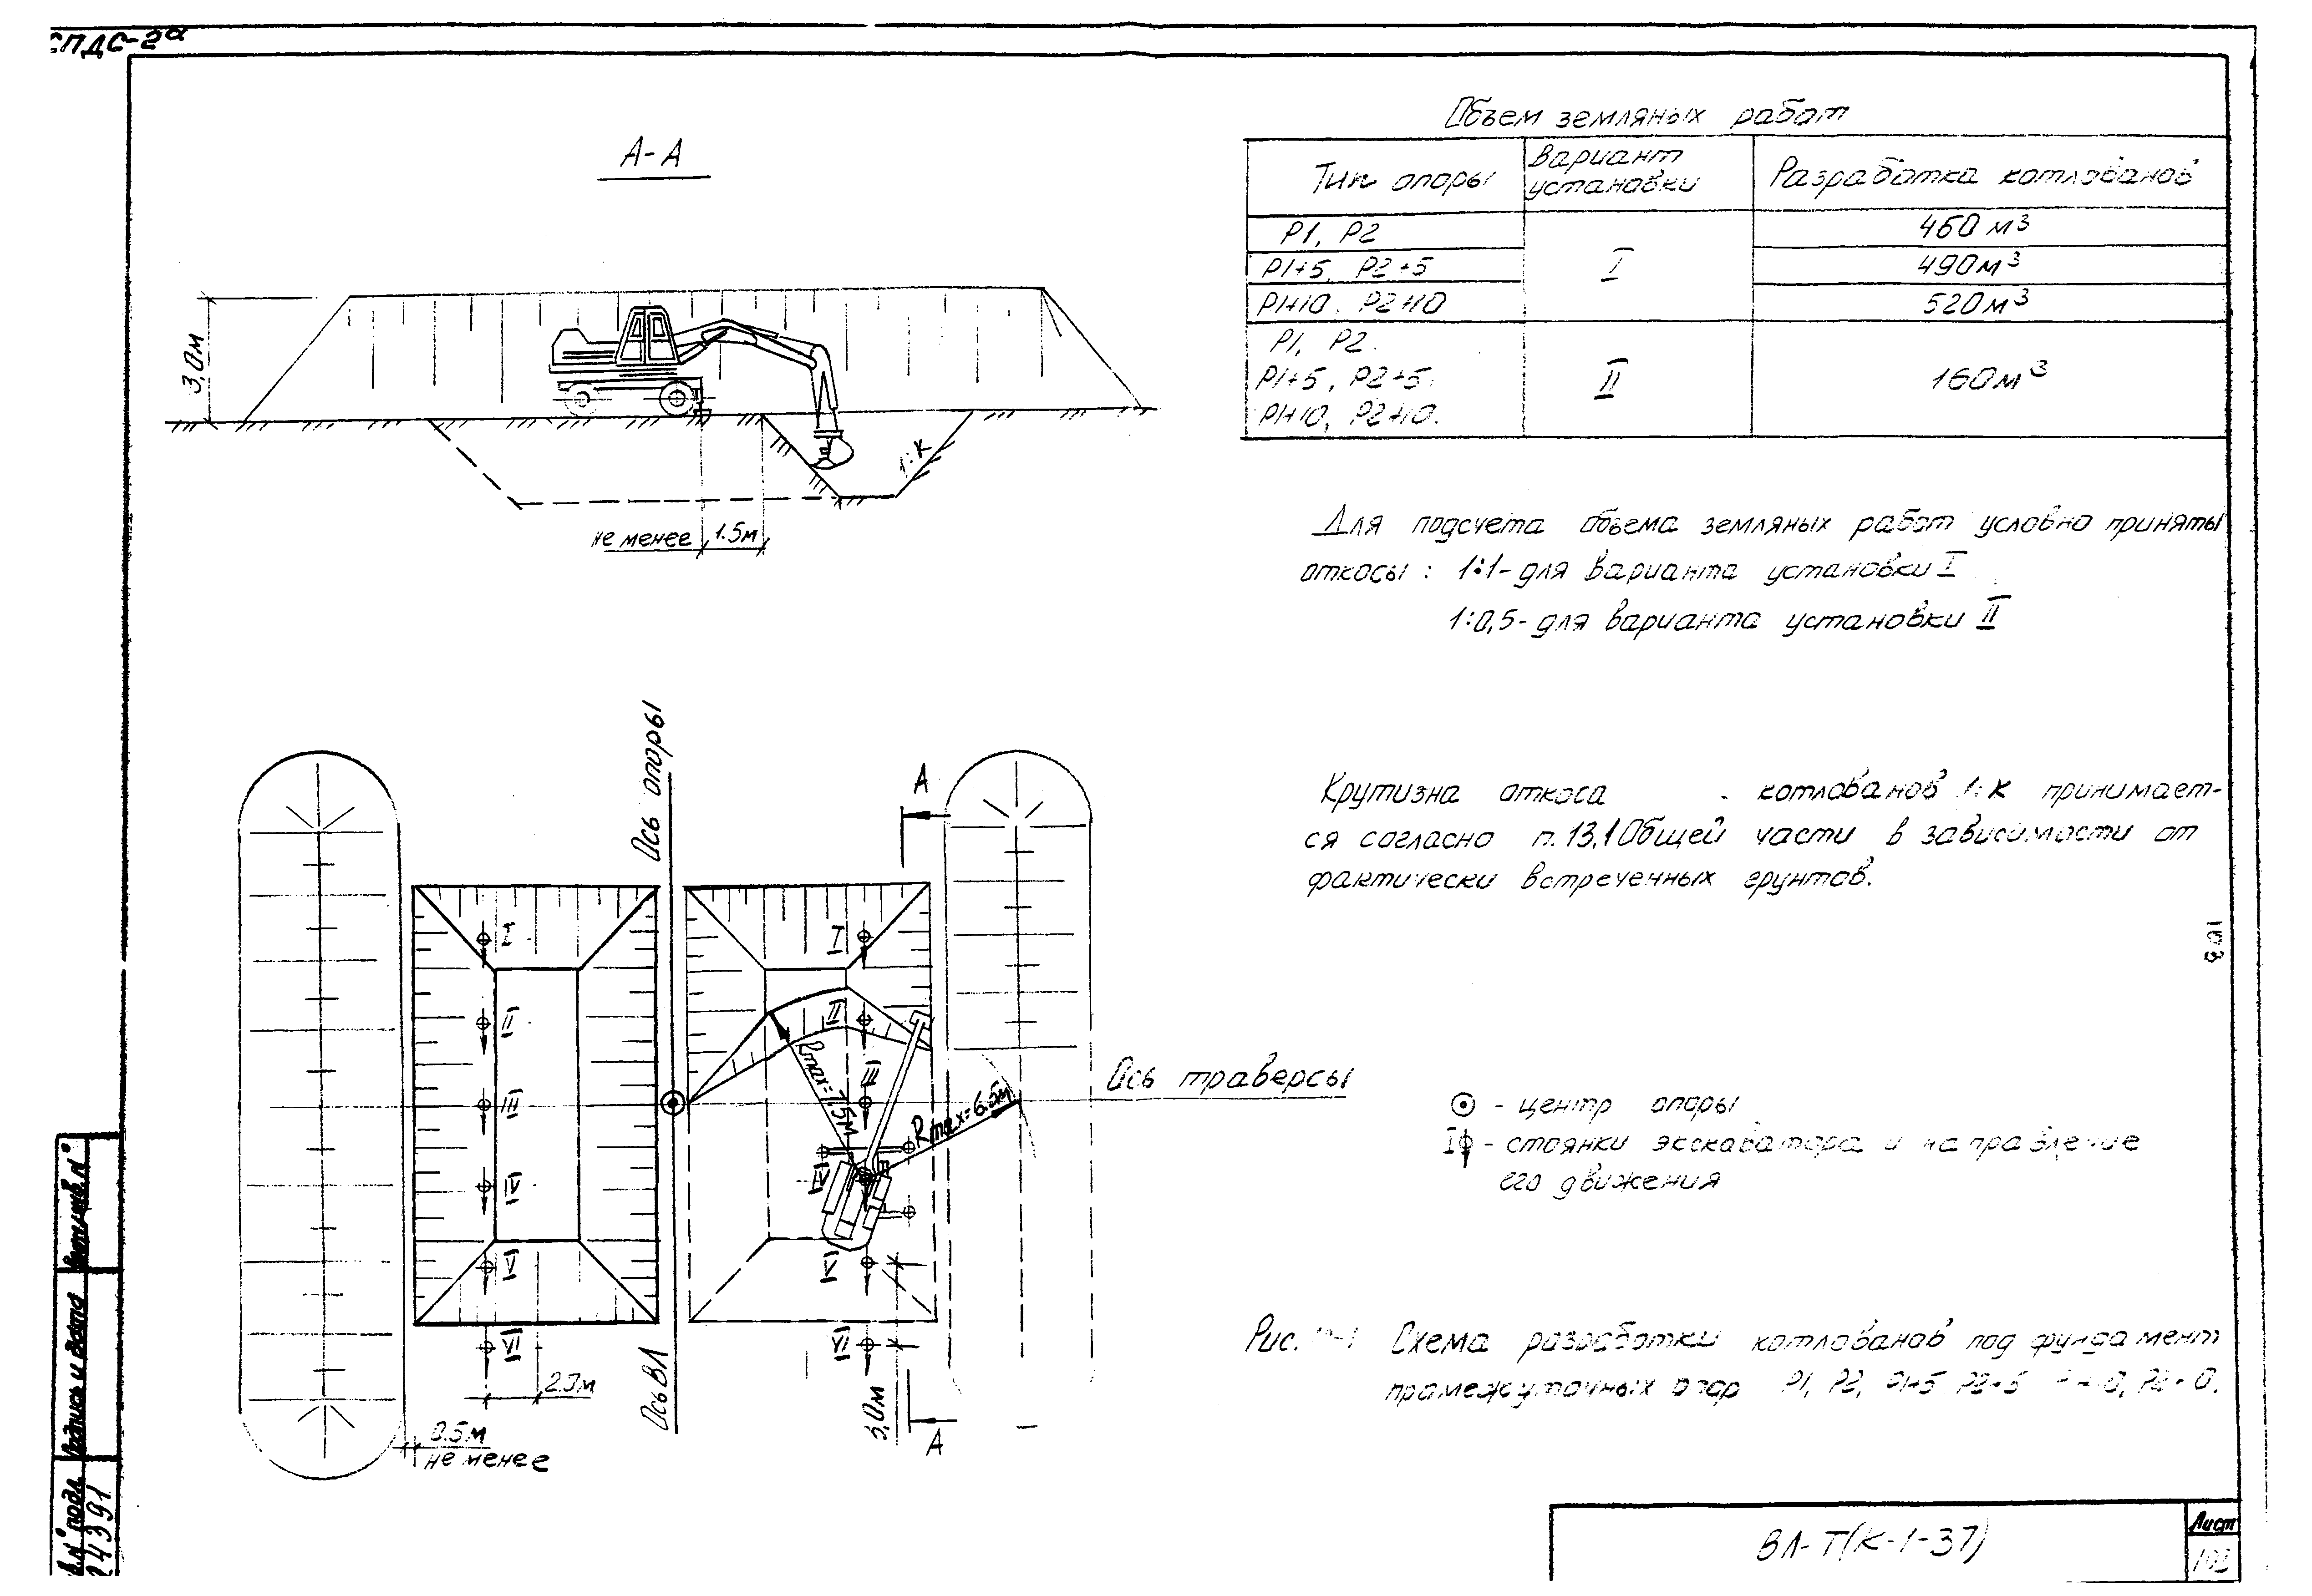 СПДС-2а
А-А
3,0м
1:К
не менее 1.5м
Объем земляных работ
Тип опоры
Вариант
установки
Разработка котлованов
Р1, Р2
460 м³
Р1+5, Р2+5
I
490м³
Р1+10. Р2+10
520м³
Р1, Р2.
Р1+5, Р2+5.
II
160м³
Р1+10, Р2+10.
Для подсчета объема земляных работ условно приняты
откосы: 1:1-для варианта установки I
1:0,5-для варианта установки II
Крутизна откоса котлованов 1:К принимает-
ся согласно п.13,1 Общей части в зависимости от
фактически встреченных грунтов.
Ось опоры
А
I
I
II
II
III
III
IV
IV
V
V
VI
VI
Rmax=7,5м
Rmax=6.5м
Ось траверсы
Ось ВЛ
2.0м
3,0м
А
0.5м
не менее
- центр опоры
I - стоянки экскаватора и направление
его движения
Рис. Схема разработки котлованов под фундамент
промежуточных опор Р1, Р2, Р1+5 Р2+5
103
Взам.инв.N°
Подпись и дата
N° подл.
24391
ВЛ-Т(К-1-37)
Лист